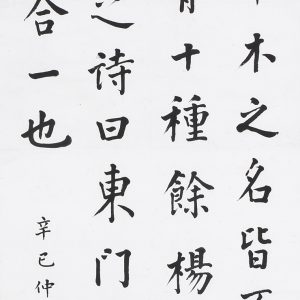 木之名皆
十種餘楊
之詩曰東門
合一也
辛巳仲